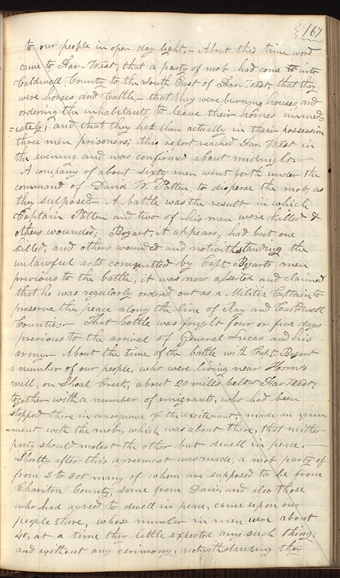 167
to our people in open day light.- About this time word
came to Far-West, that a party of mob had come to into
Caldwell County to the South East of Far West, that they
were horses and Cattle,- that they were burning houses, and
ordering the inhabitants to leave their homes immed-
=iately; and that they had then actually in their possession
three men prisoners; this report reached Far West in
the evening and was confirmed about midnight -
A company of about sixty men went forth under the
command of David W. Patten, to disperse the mob, as
they supposed. A battle was the result in which
Captain Patten and two of his men were killed &
others wounded, Bogart, it appears, had but one
killed, and others wounded and notwithstanding the
unlawful acts committed by Capt. Bogarts men
previous to the battle, it was now asserted and claimed
that he was regularly ordered out as a Militia Captain to
preserve the peace along the line of Ray and Caldwell
Counties. That battle was fought four or five days
previous to the arrival of General Lucas and his
army. About the time of the battle with Capt. Bogart
a number of our people, who were living near Hown's
mill, on Shoal Creek, about 20 miles below Far West,
together with a number of emigrants, who had been
stopped there in consequence of the excitement, made an agree
=ment with the mob, which was about there, that neither
party should molest the other but dwell in peace.
Shortly after this agreement was made, a mob party of
from 2 to 300 many of whom are supposed to be from
Chariton County, some from Davis, and also those
who had agreed to dwell in peace, came upon our
people there, whose number in men were about
40, at a time they little expected any such thing;
and without any ceremony, notwithstanding they